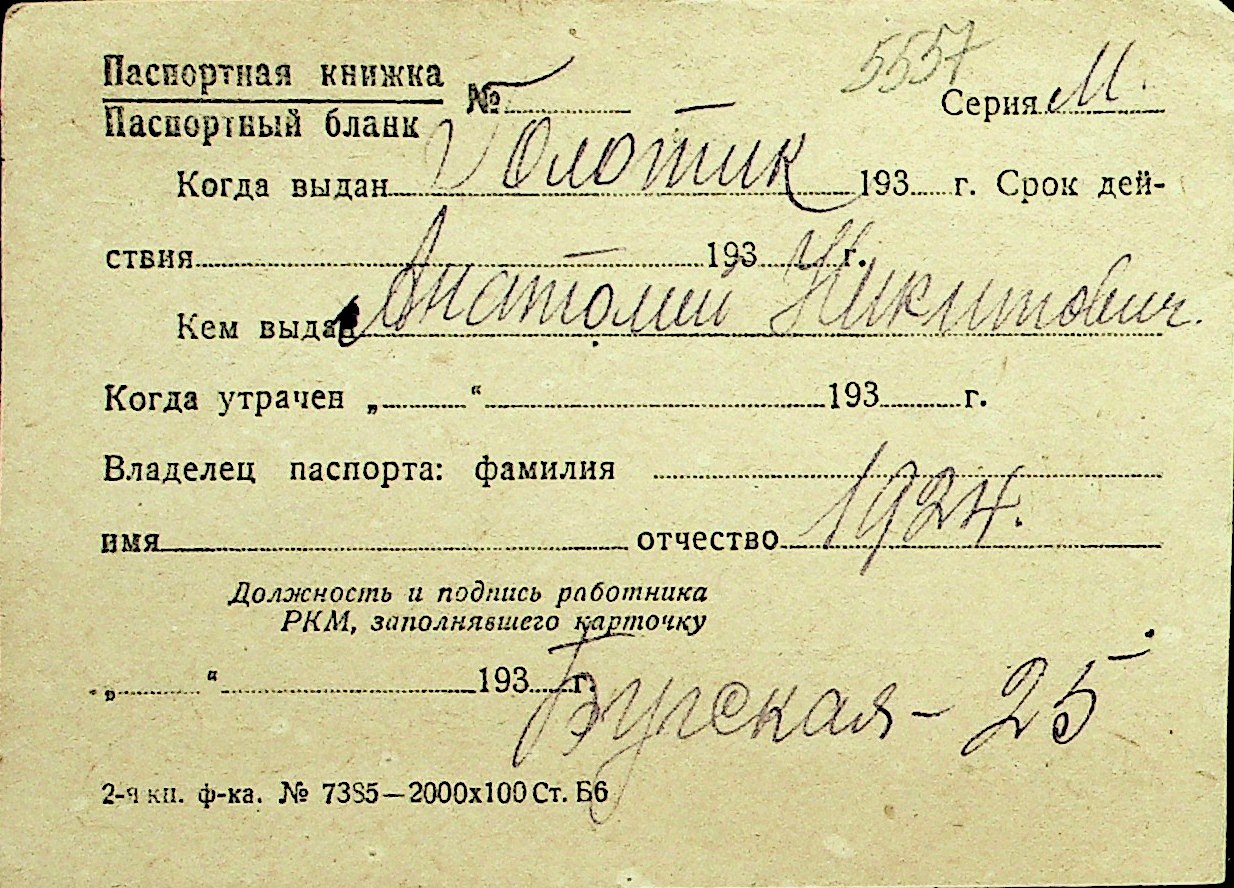 5557
Паспортная книжка
Паспортный бланк № Серия М.
Когда выдан Голотик 193 г. Срок дей-
ствия 193 г.
Кем выдан Анатолий Никитович.
Когда утрачен „ “ 193 г.
Владелец паспорта: фамилия
имя отчество 1924.
Должность и подпись работника
РКМ, заполнявшего карточку
„ “ 193 г.
Бугская - 25
2-я кн. ф-ка. № 7385—2000х100 Ст. Б6